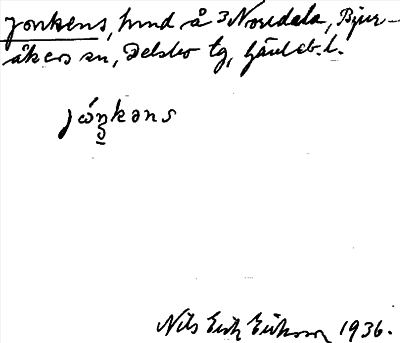 Jonkens, hmd å 3 Norrdala, Bjur-
åkers sn, Delsbo tg, Gävleb. l.
jó̤nkəns
Nils Erik Eriksson 1936.